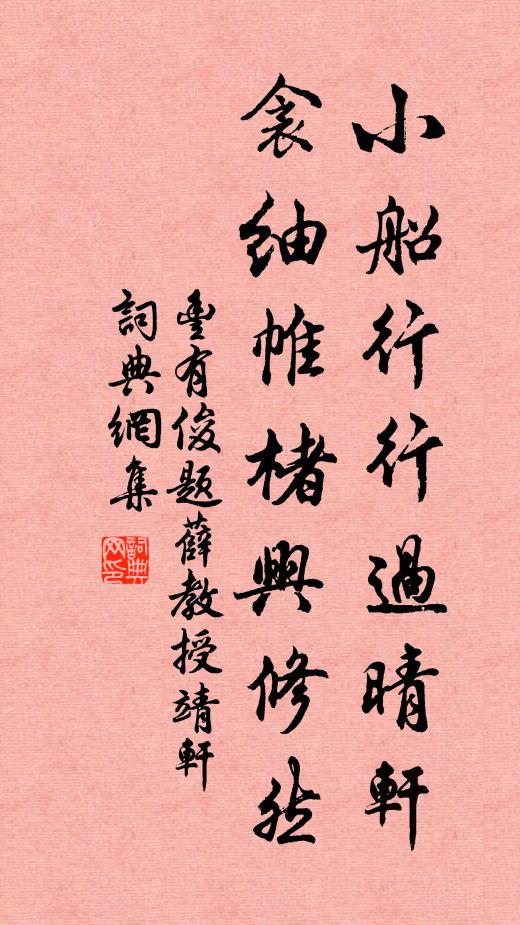 小船行行過晴軒
衾紬帷楮興修然
豐有俊題薛教授靖軒
詞典網集
詞典网印